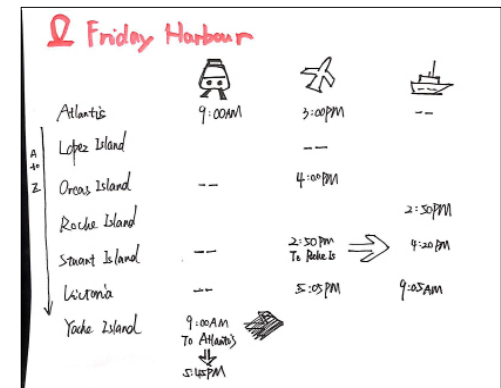 Friday Harbour
Atlantis 9:00AM 3:00PM --
A to Z
Lopez Island --
Orcas Island -- 4:00PM
Roche Island 2:50PM
Stuart Island -- 2:50PM To Roche Is 4:20PM
Victoria -- 5:05PM 9:05AM
Yache Island 9:00AM
To Atlantis
5:45PM